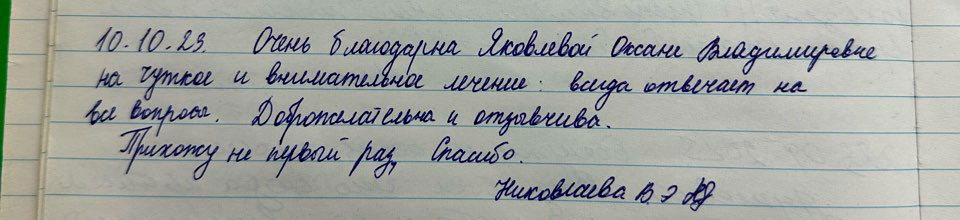 10.10.23. Очень благодарна Яковлевой Оксане Владимировне
на чуткое и внимательное лечение: всегда отвечает на
все вопросы. Доброжелательна и отзывчива.
Прихожу не первый раз, Спасибо.
Николаева В.Э